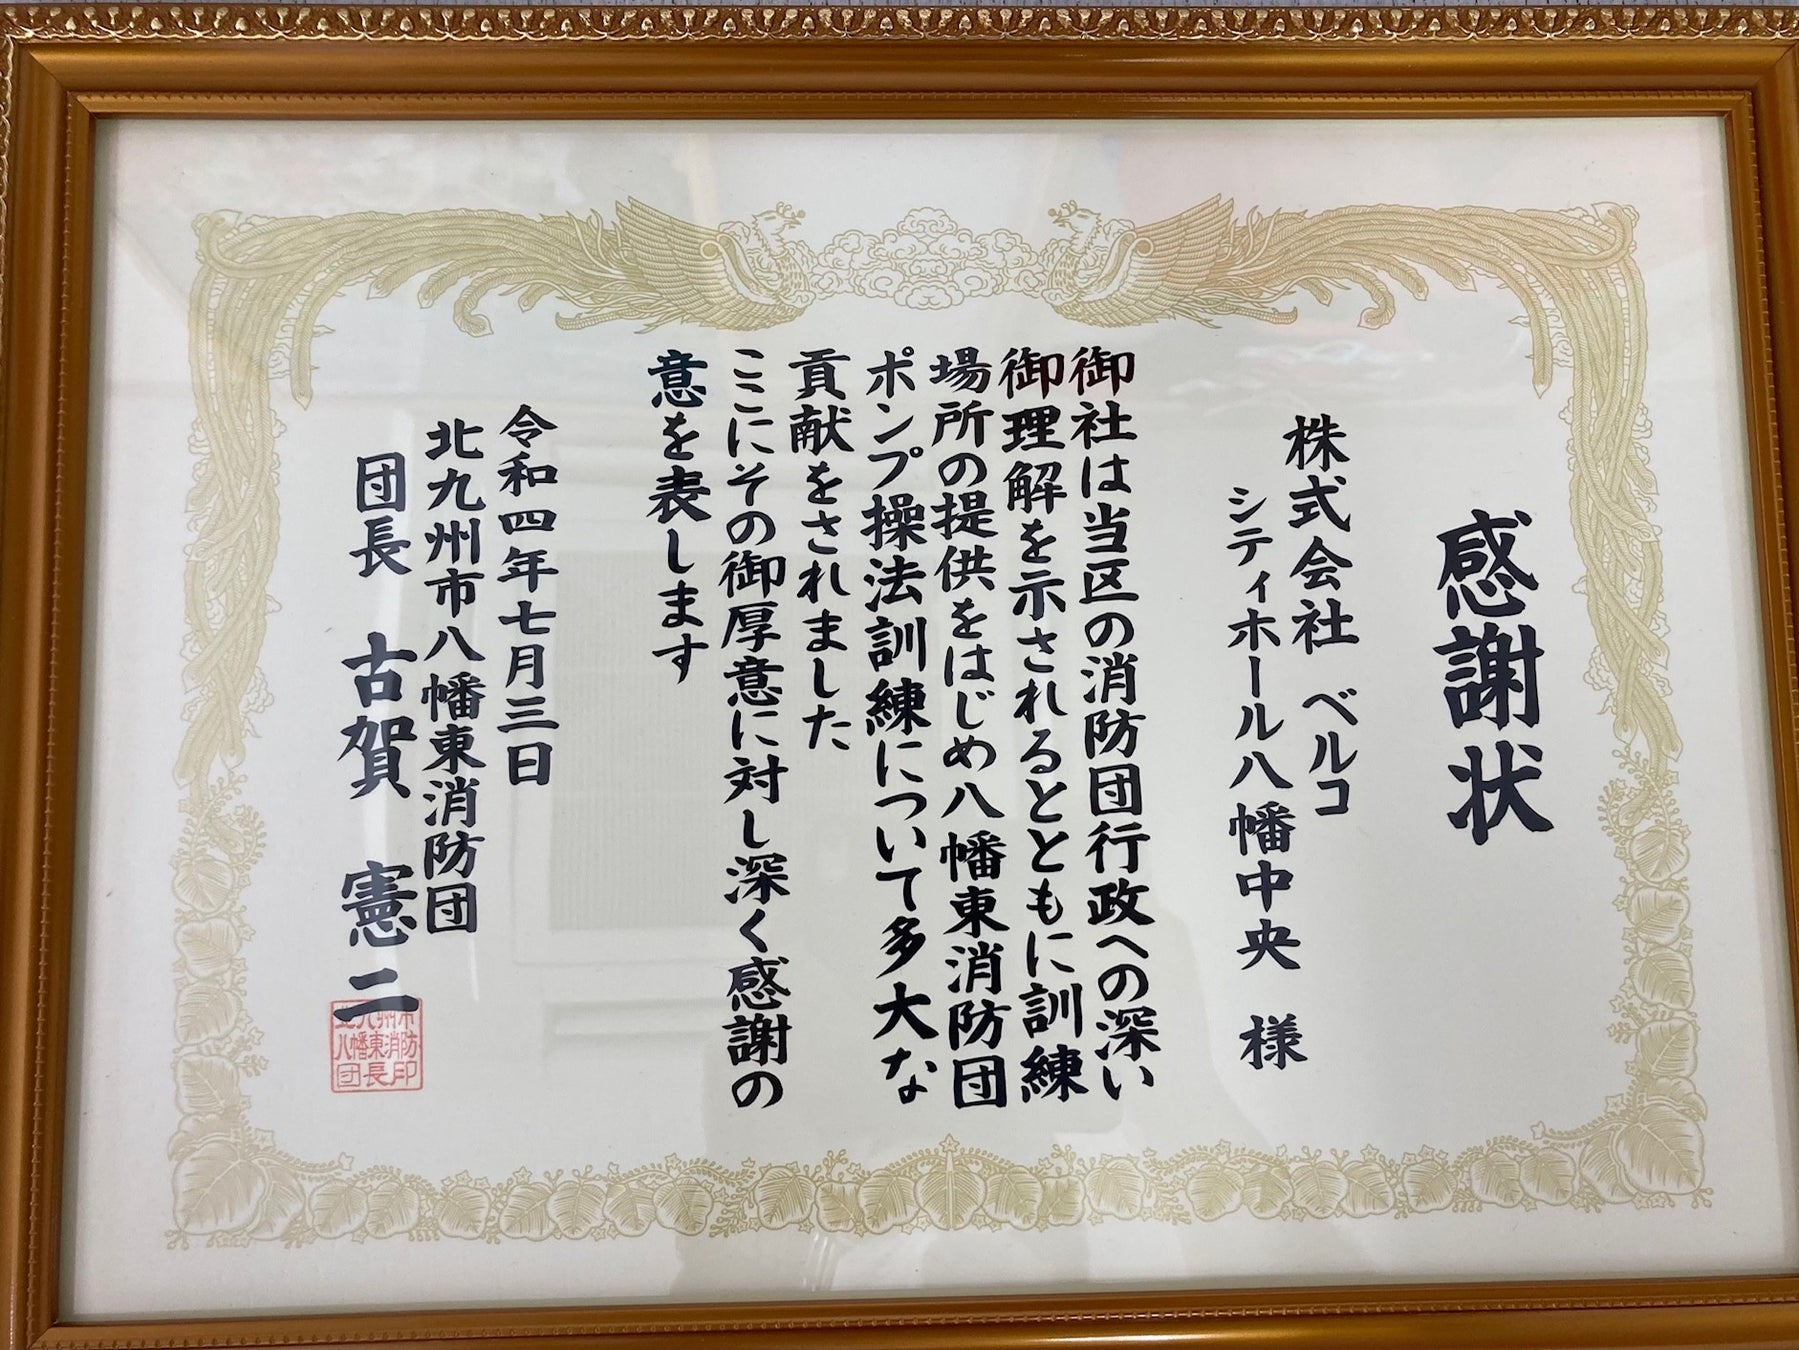 感謝状
株式会社 ベルコ
シティホール八幡中央 様
御社は当区の消防団行政への深い
御理解を示されるとともに訓練
場所の提供をはじめ八幡東消防団
ポンプ操法訓練について多大な
貢献をされました
ここにその御厚意に対し深く感謝の
意を表します
令和四年七月三日
北九州市八幡東消防団
団長 古賀 憲二
北九州市
八幡東消防
団長印